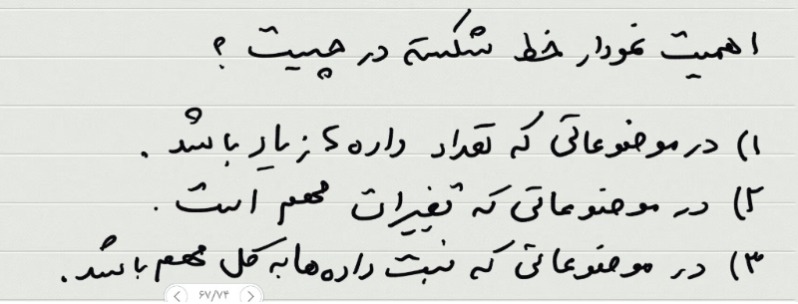 اهمیت نمودار خط شکسته در چیست ؟
۱) در موضوعاتی که تعداد داده ها زیاد باشد .
۲) در موضوعاتی که تغییرات مهم است .
۳) در موضوعاتی که نسبت داده ها به کل مهم باشد .
۶۷/۷۴